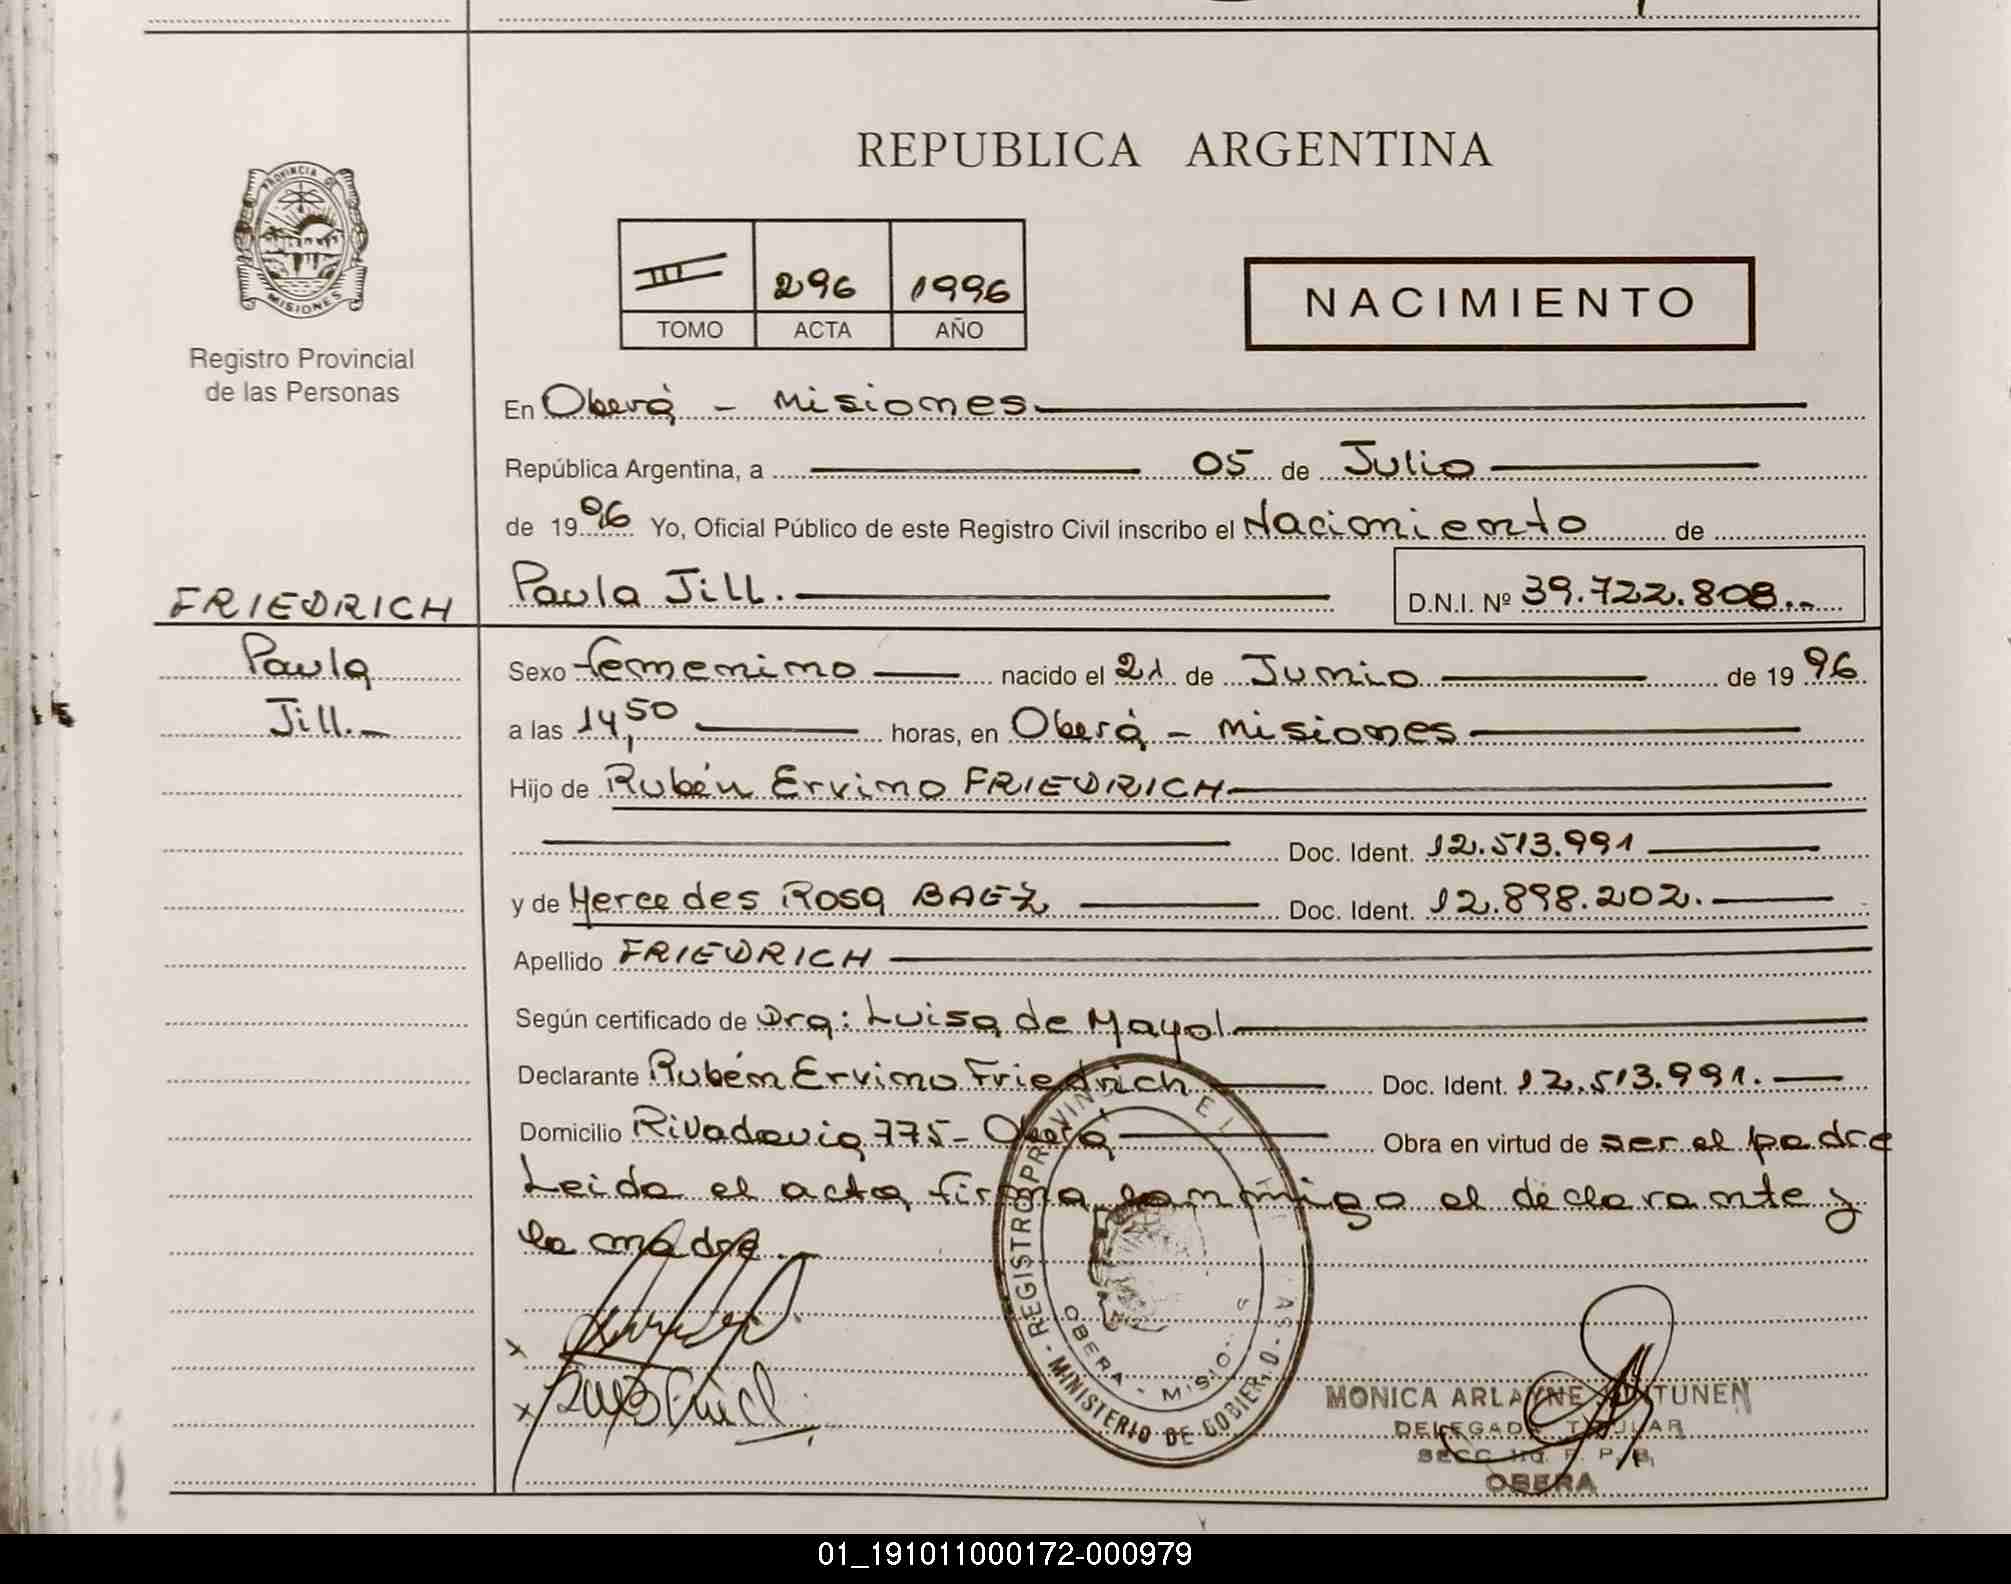 REPUBLICA ARGENTINA
PROVINCIA DE
MISIONES
Registro Provincial
de las Personas
III 296 1996
TOMO ACTA AÑO
NACIMIENTO
En Oberá - Misiones
República Argentina, a 05 de Julio
de 1996 Yo, Oficial Público de este Registro Civil inscribo el Nacimiento de
FRIEDRICH
Paula
Jill.
Paula Jill. D.N.I. Nº 39.722.808..
Sexo femenino nacido el 21 de Junio de 1996
a las 14,50 horas, en Oberá - Misiones
Hijo de Rubén Ervino FRIEDRICH
Doc. Ident. 12.513.991
y de Mercedes Rosa BAEZ Doc. Ident. 12.898.202.
Apellido FRIEDRICH
Según certificado de Dra: Luisa de Mayol
Declarante Rubén Ervino Friedrich Doc. Ident. 12.513.991.
Domicilio Rivadavia 775 - Oberá Obra en virtud de ser el padre
Leida el acta firma conmigo el declarante y
la madre
REGISTRO PROVINCIAL DE LAS
MINISTERIO DE GOBIERNO
OBERA - MISIONES
MONICA ARLAYNE
DELEGADA TITULAR
SECC. 1ra. R. P. P.
OBERA
01_191011000172-000979